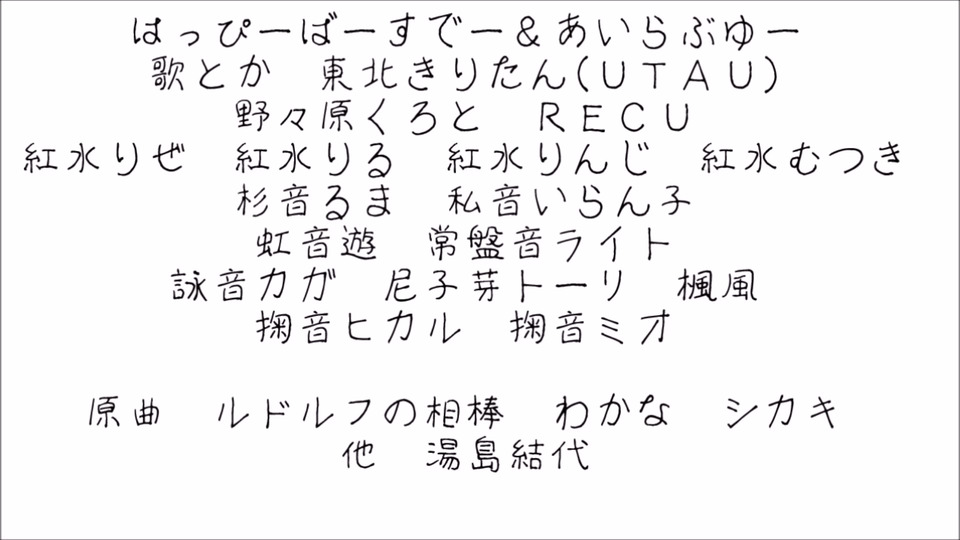 はっぴーばーすでー＆あいらぶゆー
歌とか　東北きりたん(ＵＴＡＵ)
野々原くろと　ＲＥＣＵ
紅水りぜ　紅水りる　紅水りんじ　紅水むつき
杉音るま　私音いらん子
虹音遊　常盤音ライト
詠音カガ　尼子芽トーリ　楓風
掬音ヒカル　掬音ミオ
原曲　ルドルフの相棒　わかな　シカキ
他　湯島結代